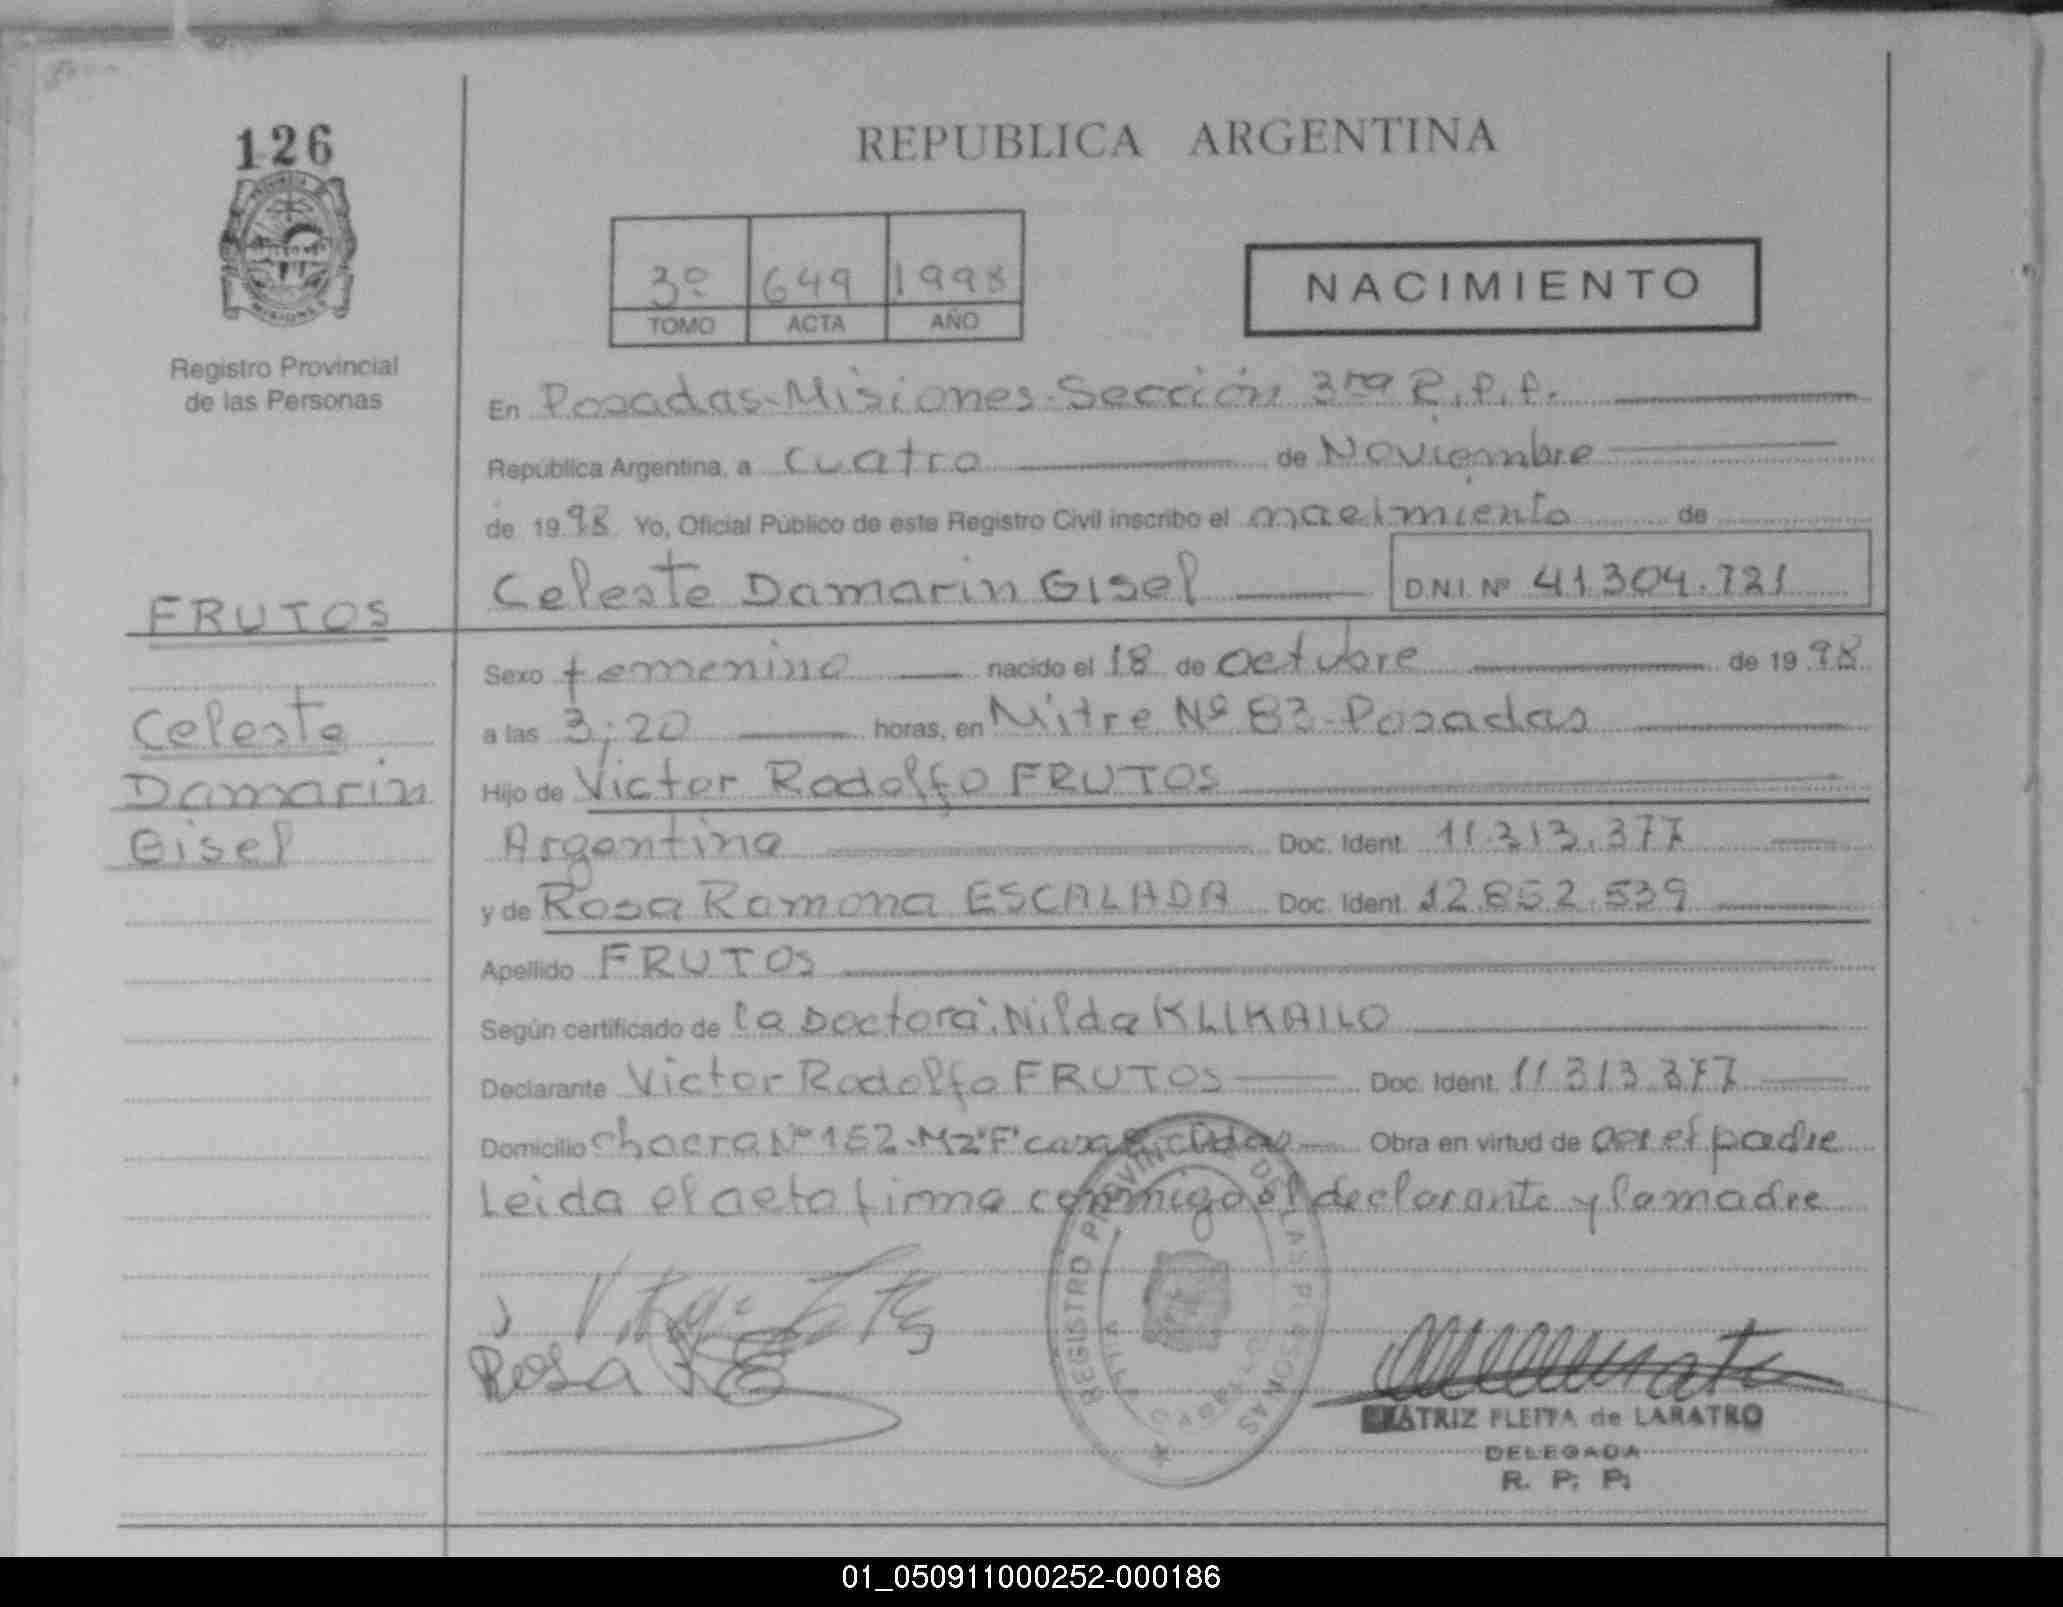 126
REPUBLICA ARGENTINA
3º 649 1998
TOMO ACTA AÑO
NACIMIENTO
Registro Provincial
de las Personas
En Posadas-Misiones-Sección 3ra R.P.P.
República Argentina, a cuatro de Noviembre
de 1998 Yo, Oficial Público de este Registro Civil inscribo el nacimiento de
Celeste Damarin Gisel D.N.I. Nº 41.304.721
FRUTOS
Celeste
Damarin
Gisel
Sexo femenino nacido el 18 de octubre de 1998
a las 3;20 horas, en Mitre Nº 83-Posadas
Hijo de Victor Rodolfo FRUTOS
Argentina Doc. Ident. 11.313.377
y de Rosa Ramona ESCALADA Doc. Ident. 12.852.539
Apellido FRUTOS
Según certificado de la Doctora: Nilda KLIKAILO
Declarante Victor Rodolfo FRUTOS Doc. Ident. 11.313.377
Domicilio chacra Nº 152-Mz"F" casa Obra en virtud de ser el padre
Leida el acta firma conmigo el declarante y la madre
Rosa
REGISTRO PROVINCIAL DE LAS PERSONAS
BEATRIZ FLEITA de LARATRO
DELEGADA
R. P. P.
01_050911000252-000186